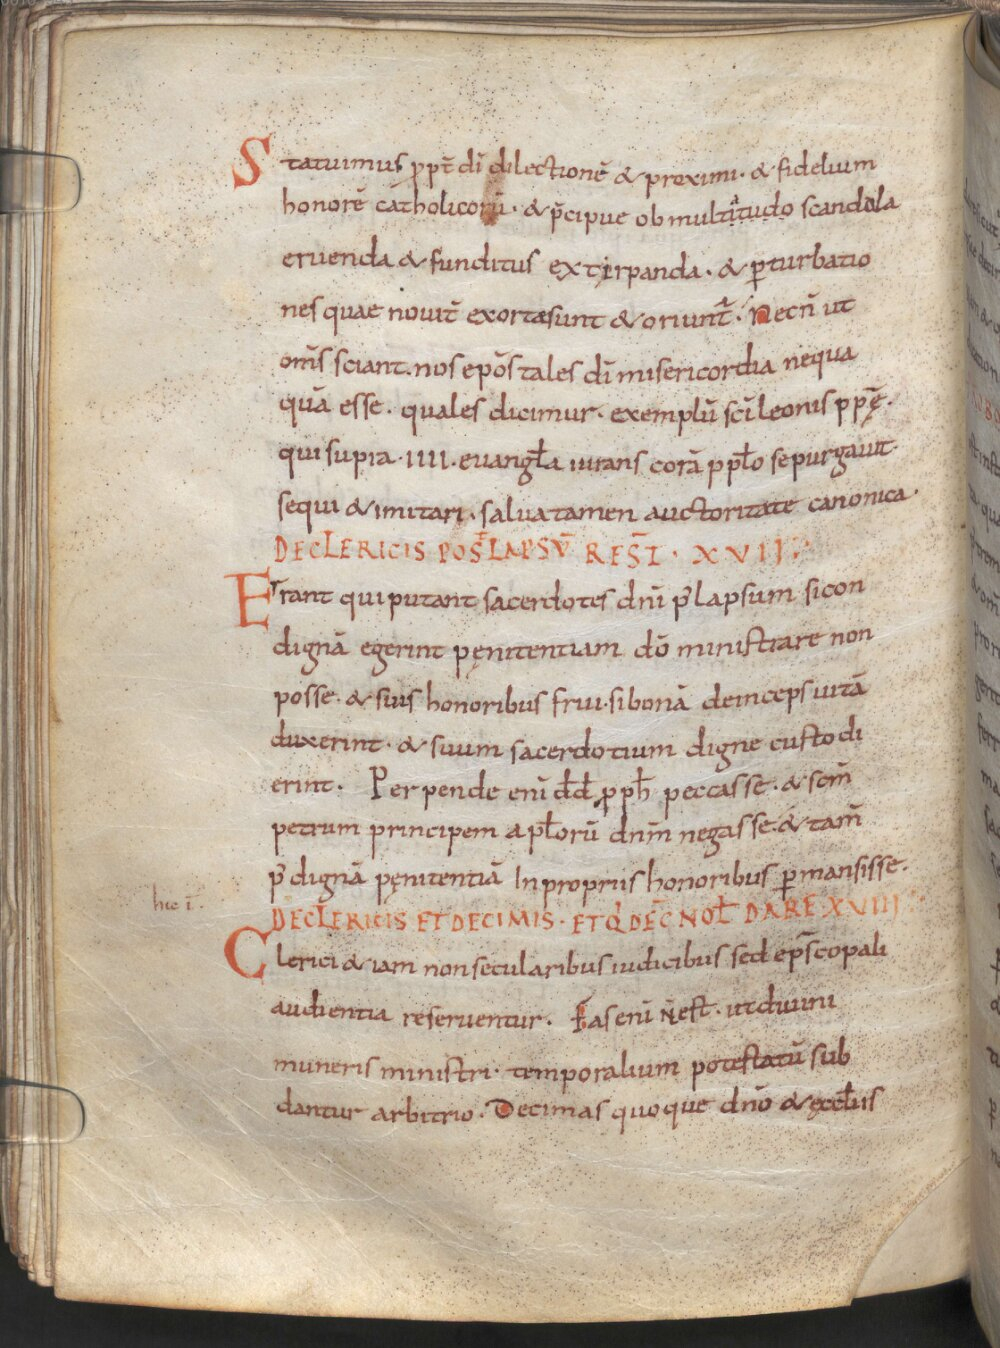 Statuimus ꝓpt̄ dī dilectionē & proximi · & fidelium
honorē catholicorū · & p̄cipue ob multitudo scandala
eruenda & funditus extirpanda · & ꝑturbatio
nes quae nouit̄ exortæ sunt & oriunt̄ · Necn̄ ut
om̄s sciant · nos ep̄os tales dī misericordia nequa
quā esse · quales dicimur · exemplū sc̄i leonis ppę̄ ·
qui supra · IIII · euangl̄a iurans corā ppl̄o se purgauit
sequi & imitari · salua tamen auctoritate canonica ·
DE CLERICIS POST LAPSV̄ REST̄I · XVII
Errant qui putant sacerdotes dn̄i p̄ lapsum si con
dignā egerint pęnitentiam dō ministrare non
posse · & suis honoribus frui · si bonā deinceps uitā
duxerint · & suum sacerdotium digne custodi
erint · Perpende enī dd̄ ꝓph̄ peccasse · & scm̄
petrum principem apl̄orū dnm̄ negasse · & tam̄
p̄ dignā pęnitentiā In propriis honoribus ꝑmansisse ·
hic ī ·
DE CLERICIS ET DECIMIS · ET Q̄D DEC̄ NOL̄ DARE XVIII
Clerici & iam non secularibus iudicibus sed ep̄scopali
audientia reseruentur · Fas enī n̄ est · ut diuini
muneris ministri · temporalium potestatū sub
dantur arbitrio · Decimas quoque dn̄o & ęccl̄iis